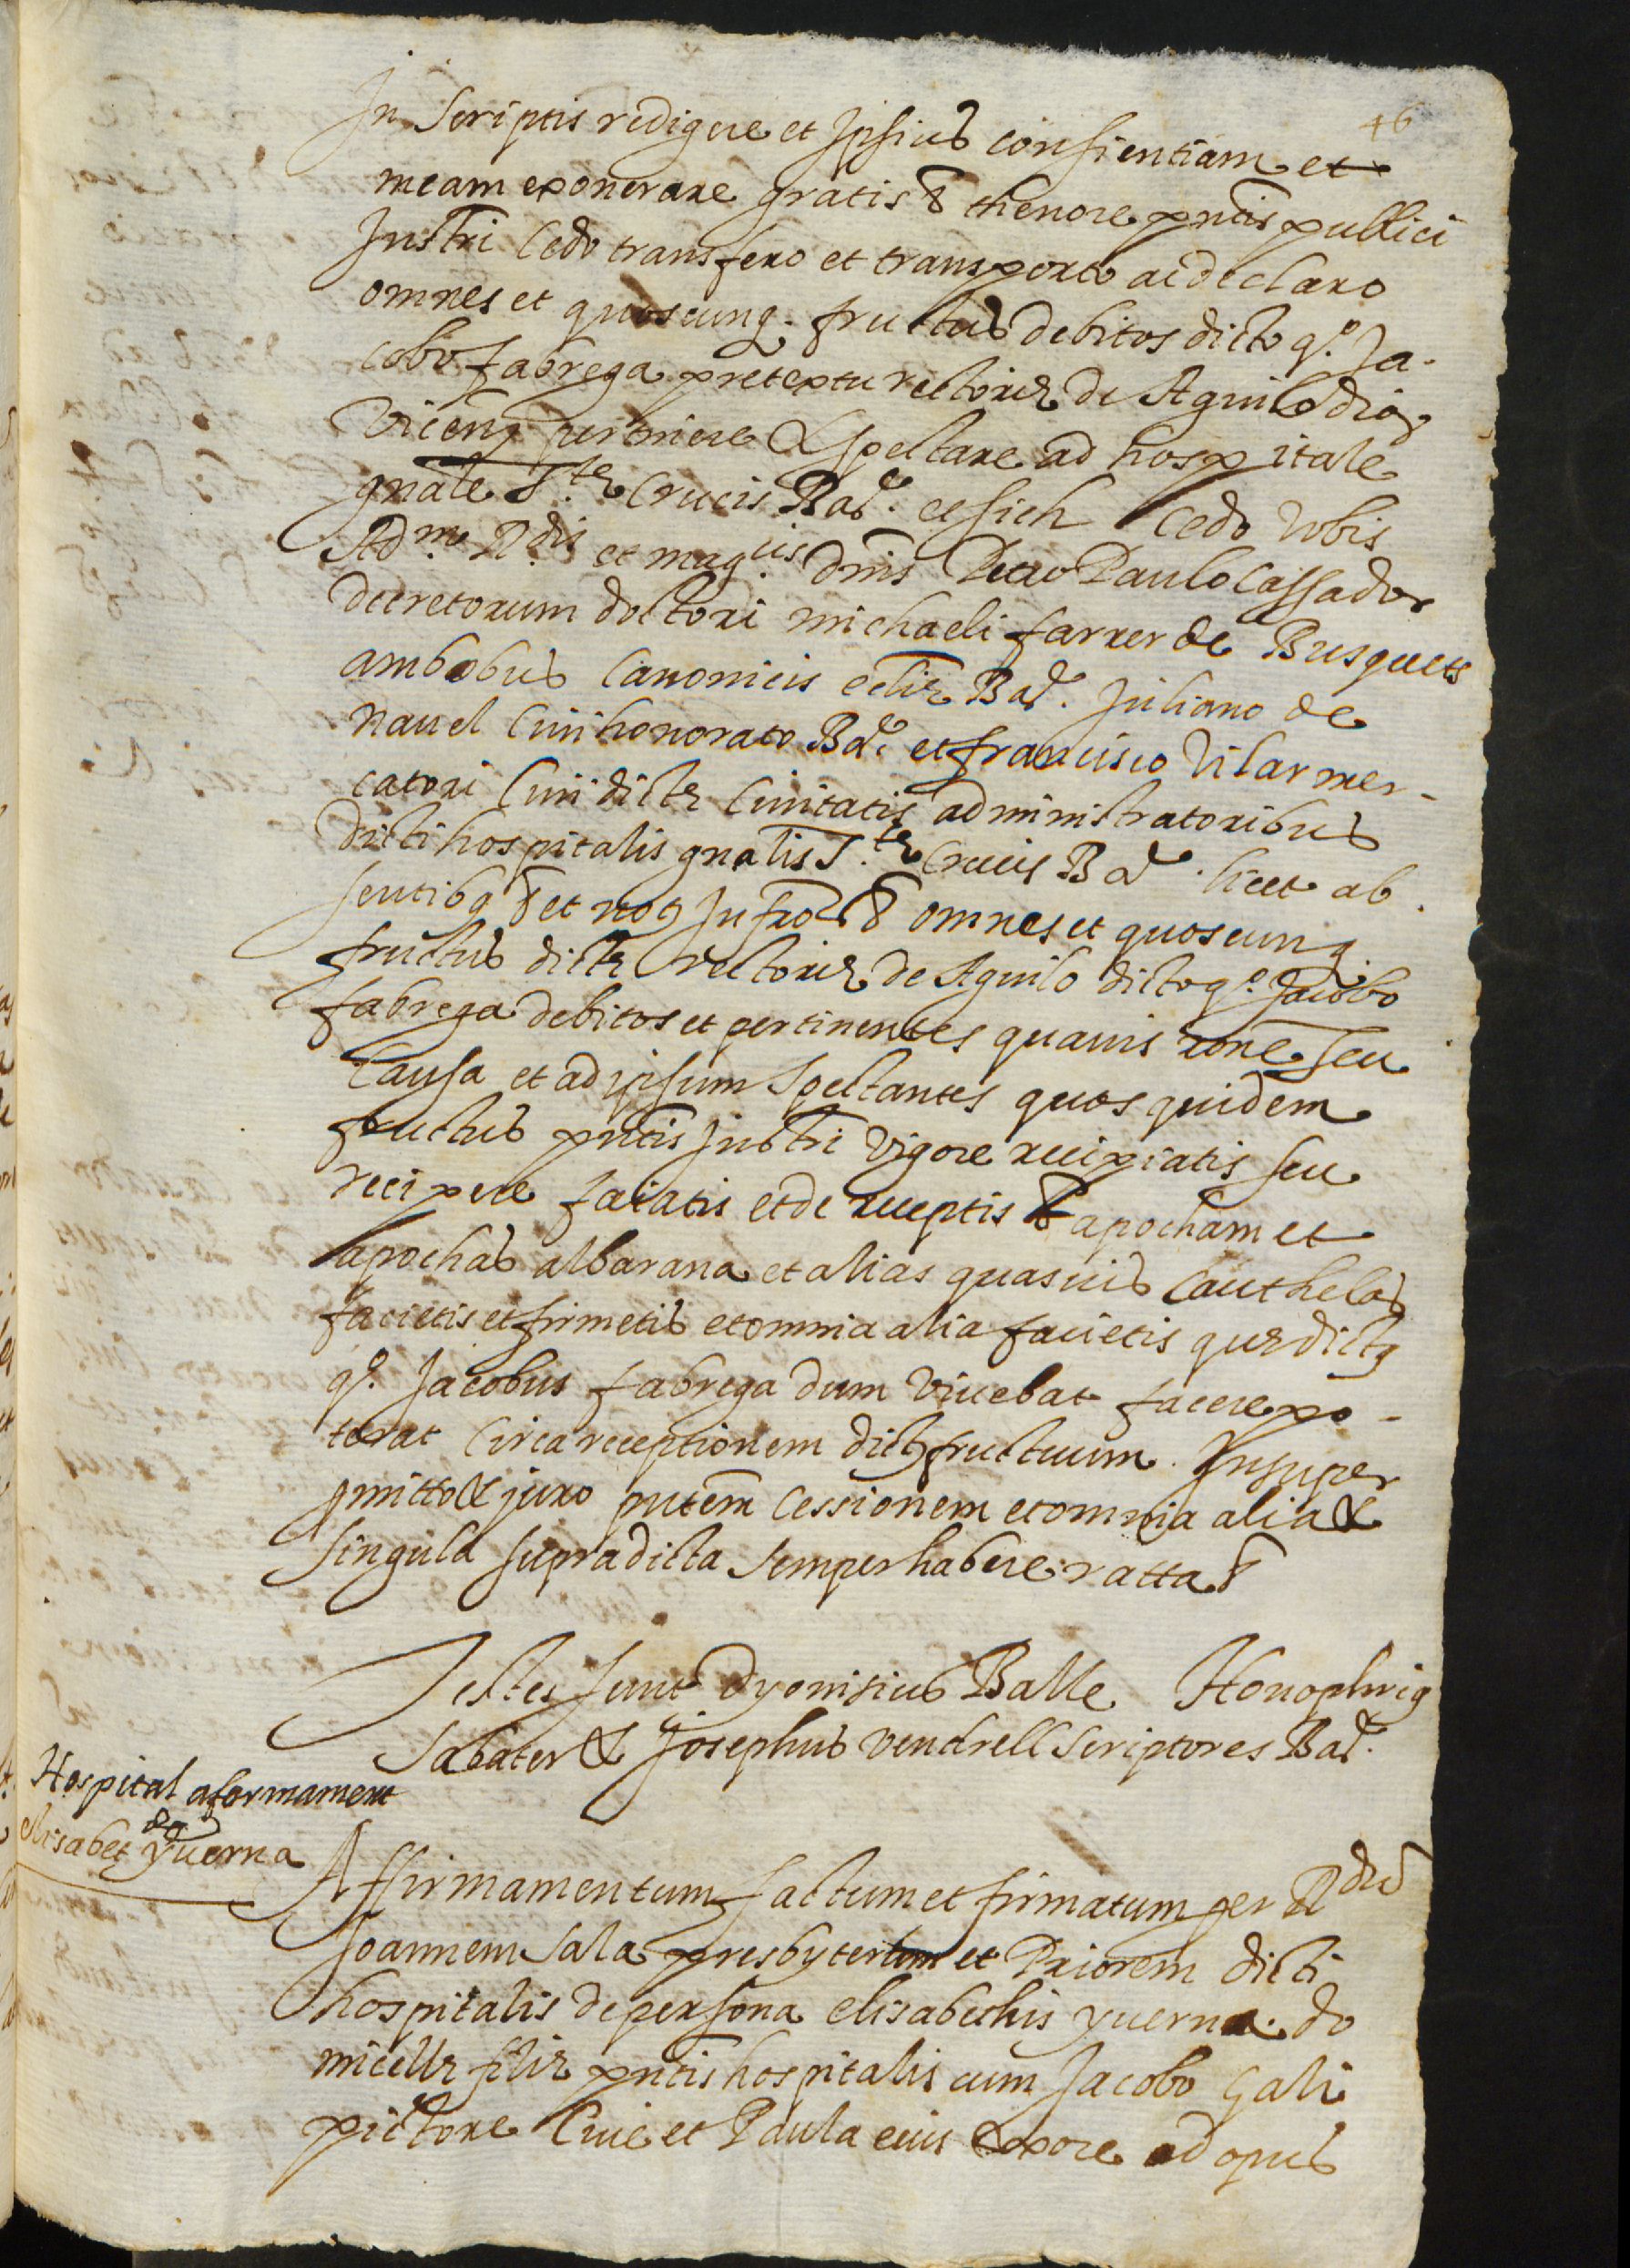 46
In Scriptis redigere et Ipsius consientiam et
meam exonerare gratis & thenore pntis publici
Instri Cedo transfero et transporto ac declaro
omnes et quoscunq. fructus debitos dicto qo. Ja-
cobo fabrega pretextu rectoriæ de Aguilo dioc
Vicenz pertinere & spectare ad hospitale
gnale Stæ Crucis Bar. et sich Cedo Vobis
Adm. Rdis et magcis. Dnis Petro Paulo Cassador
decretorum doctori michaeli farrer de Busquets
ambobus Canonicis ecliæ Bar. Juliano de
Navel Civi honorato Bar. et francisco Vilar mer-
catori Civi dictæ Civitatis administratoribus
dicti hospitalis gnalis Stæ Crucis Bar. licet ab
sentibq & et not Infro & omnes et quoscunq.
fructus dictæ rectoriæ de Aguilo dicto qo. Jacobo
fabrega debitos et pertinentes quavis rone seu
Causa et ad ipsum Spectantes quos quidem
fructus pntis Instri Vigore recipiatis seu
recipere faciatis et de receptis & apocham et
apochas albarana et alias quasvis Cauthelas
facietis et firmetis et omnia alia facietis quæ dictq
qo. Jacobus fabrega dum Vivebat facere po-
terat Circa receptionem dictq fructuum. Insuper
pmitto & juro pntem Cessionem et omnia alia &
singula supradicta semper habere ratta &
Testes sunt Dyonisius Balle Honophriq
Sabater & Josephus Vendrell Scriptores Bar.
Hospital afermament
de
elisabet yverna
Affirmamentum factum et firmatum per Rdum
Joannem Sala presbyterum et Priorem dicti
hospitalis de persona elisabethis yverna do
micellæ filiæ pntis hospitalis cum Jacobo Gali
pictore Cive et Paula eius uxore ad opus